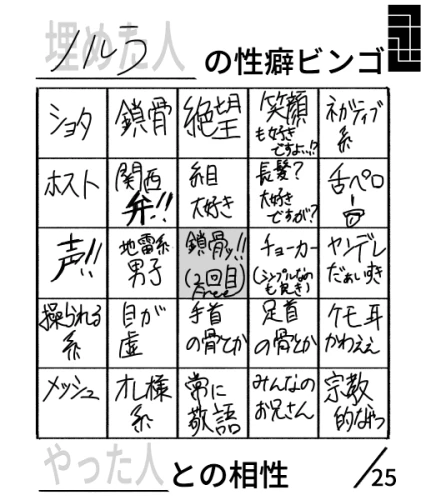 埋めた人
ノルラ の性癖ビンゴ
ショタ
鎖骨
絶望
笑顔
も好き
ですよ…!?
ネガティブ
系
ホスト
関西
弁!!
糸目
大好き
長髪?
大好き
ですが?
舌ペロ
声!!
地雷系
男子
鎖骨ッ!!
(2回目)
Free
チョーカー
(シンプルなの
も良き)
ヤンデレ
だぁい好き
操られる
系
目が
虚
手首
の骨とか
足首
の骨とか
ケモ耳
かわえぇ
メッシュ
オレ様
系
常に
敬語
みんなの
お兄さん
宗教
的なやつ
やった人
との相性 /25